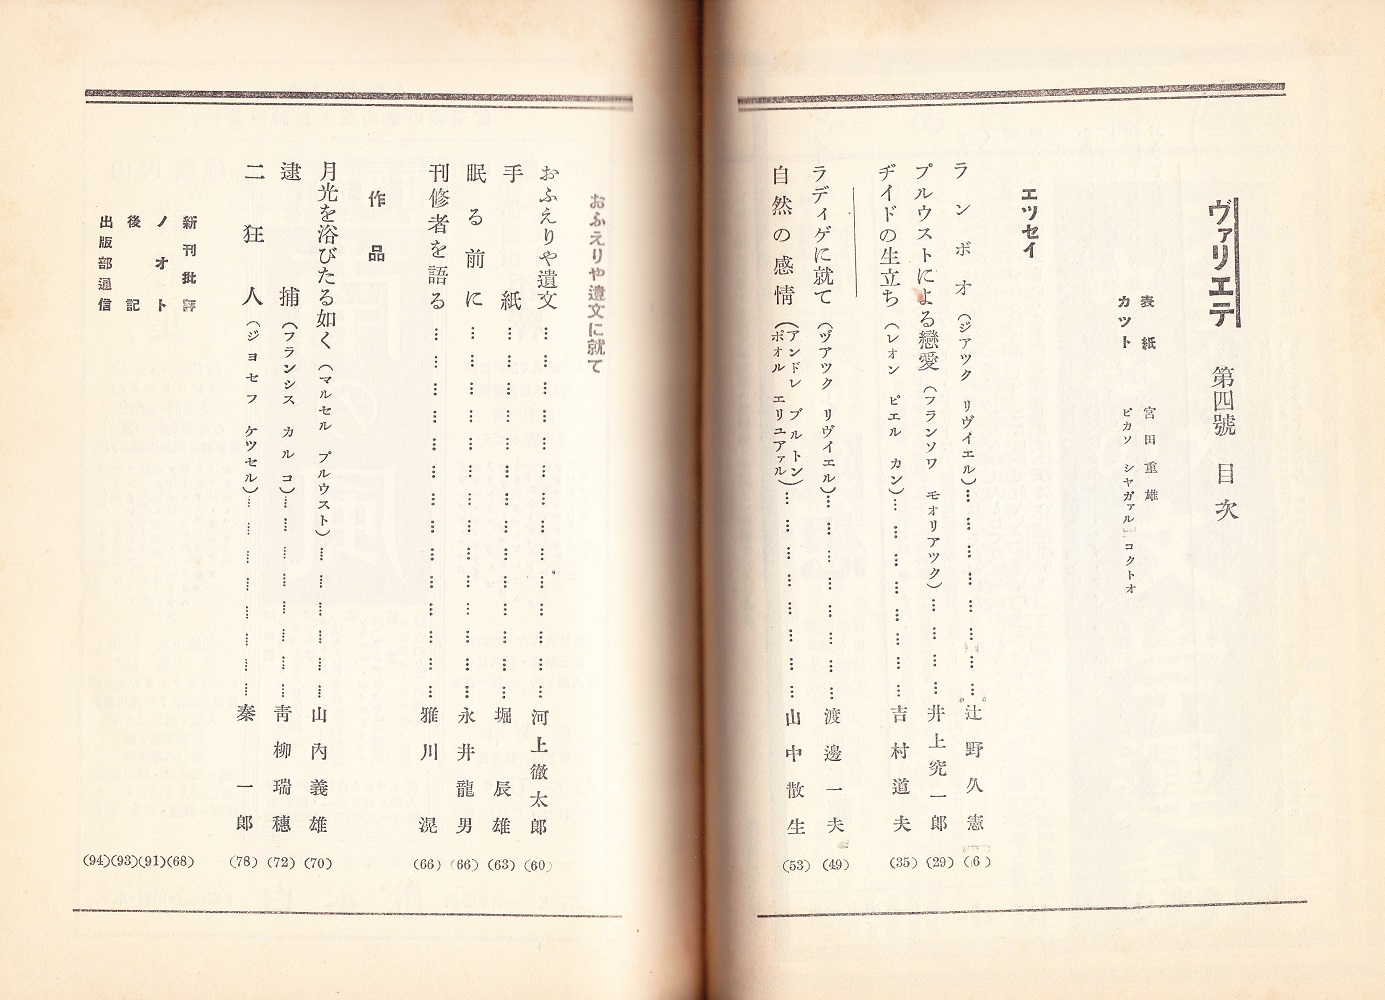 ヴァリエテ 第四號 目次
表紙 宮田重雄
カツト ピカソ シヤガァル コクトオ
エツセイ
ランボオ(ジアツク リヴイエル)…………………辻野久憲(6)
プルウストによる戀愛(フランソワ モオリアツク)…………井上究一郎(29)
ヂイドの生立ち(レオン ピエル カン)……………………吉村道夫(35)
ラディゲに就て(ヴアツク リヴイエル)……………………渡邊一夫(49)
自然の感情(アンドレ ブルトン ポオル エリユアァル)……………………山中散生(53)
おふえりや遺文に就て
おふえりや遺文…………………………河上徹太郎(60)
手紙…………………………堀辰雄(63)
眠る前に…………………………永井龍男(66)
刊修者を語る…………………………雅川滉(66)
作品
月光を浴びたる如く(マルセル プルウスト)………………山內義雄(70)
逮捕(フランシス カルコ)……………………靑柳瑞穗(72)
二狂人(ジヨセフ ケツセル)……………………秦一郎(78)
新刊批評(68)
ノオト(91)
後記(93)
出版部通信(94)